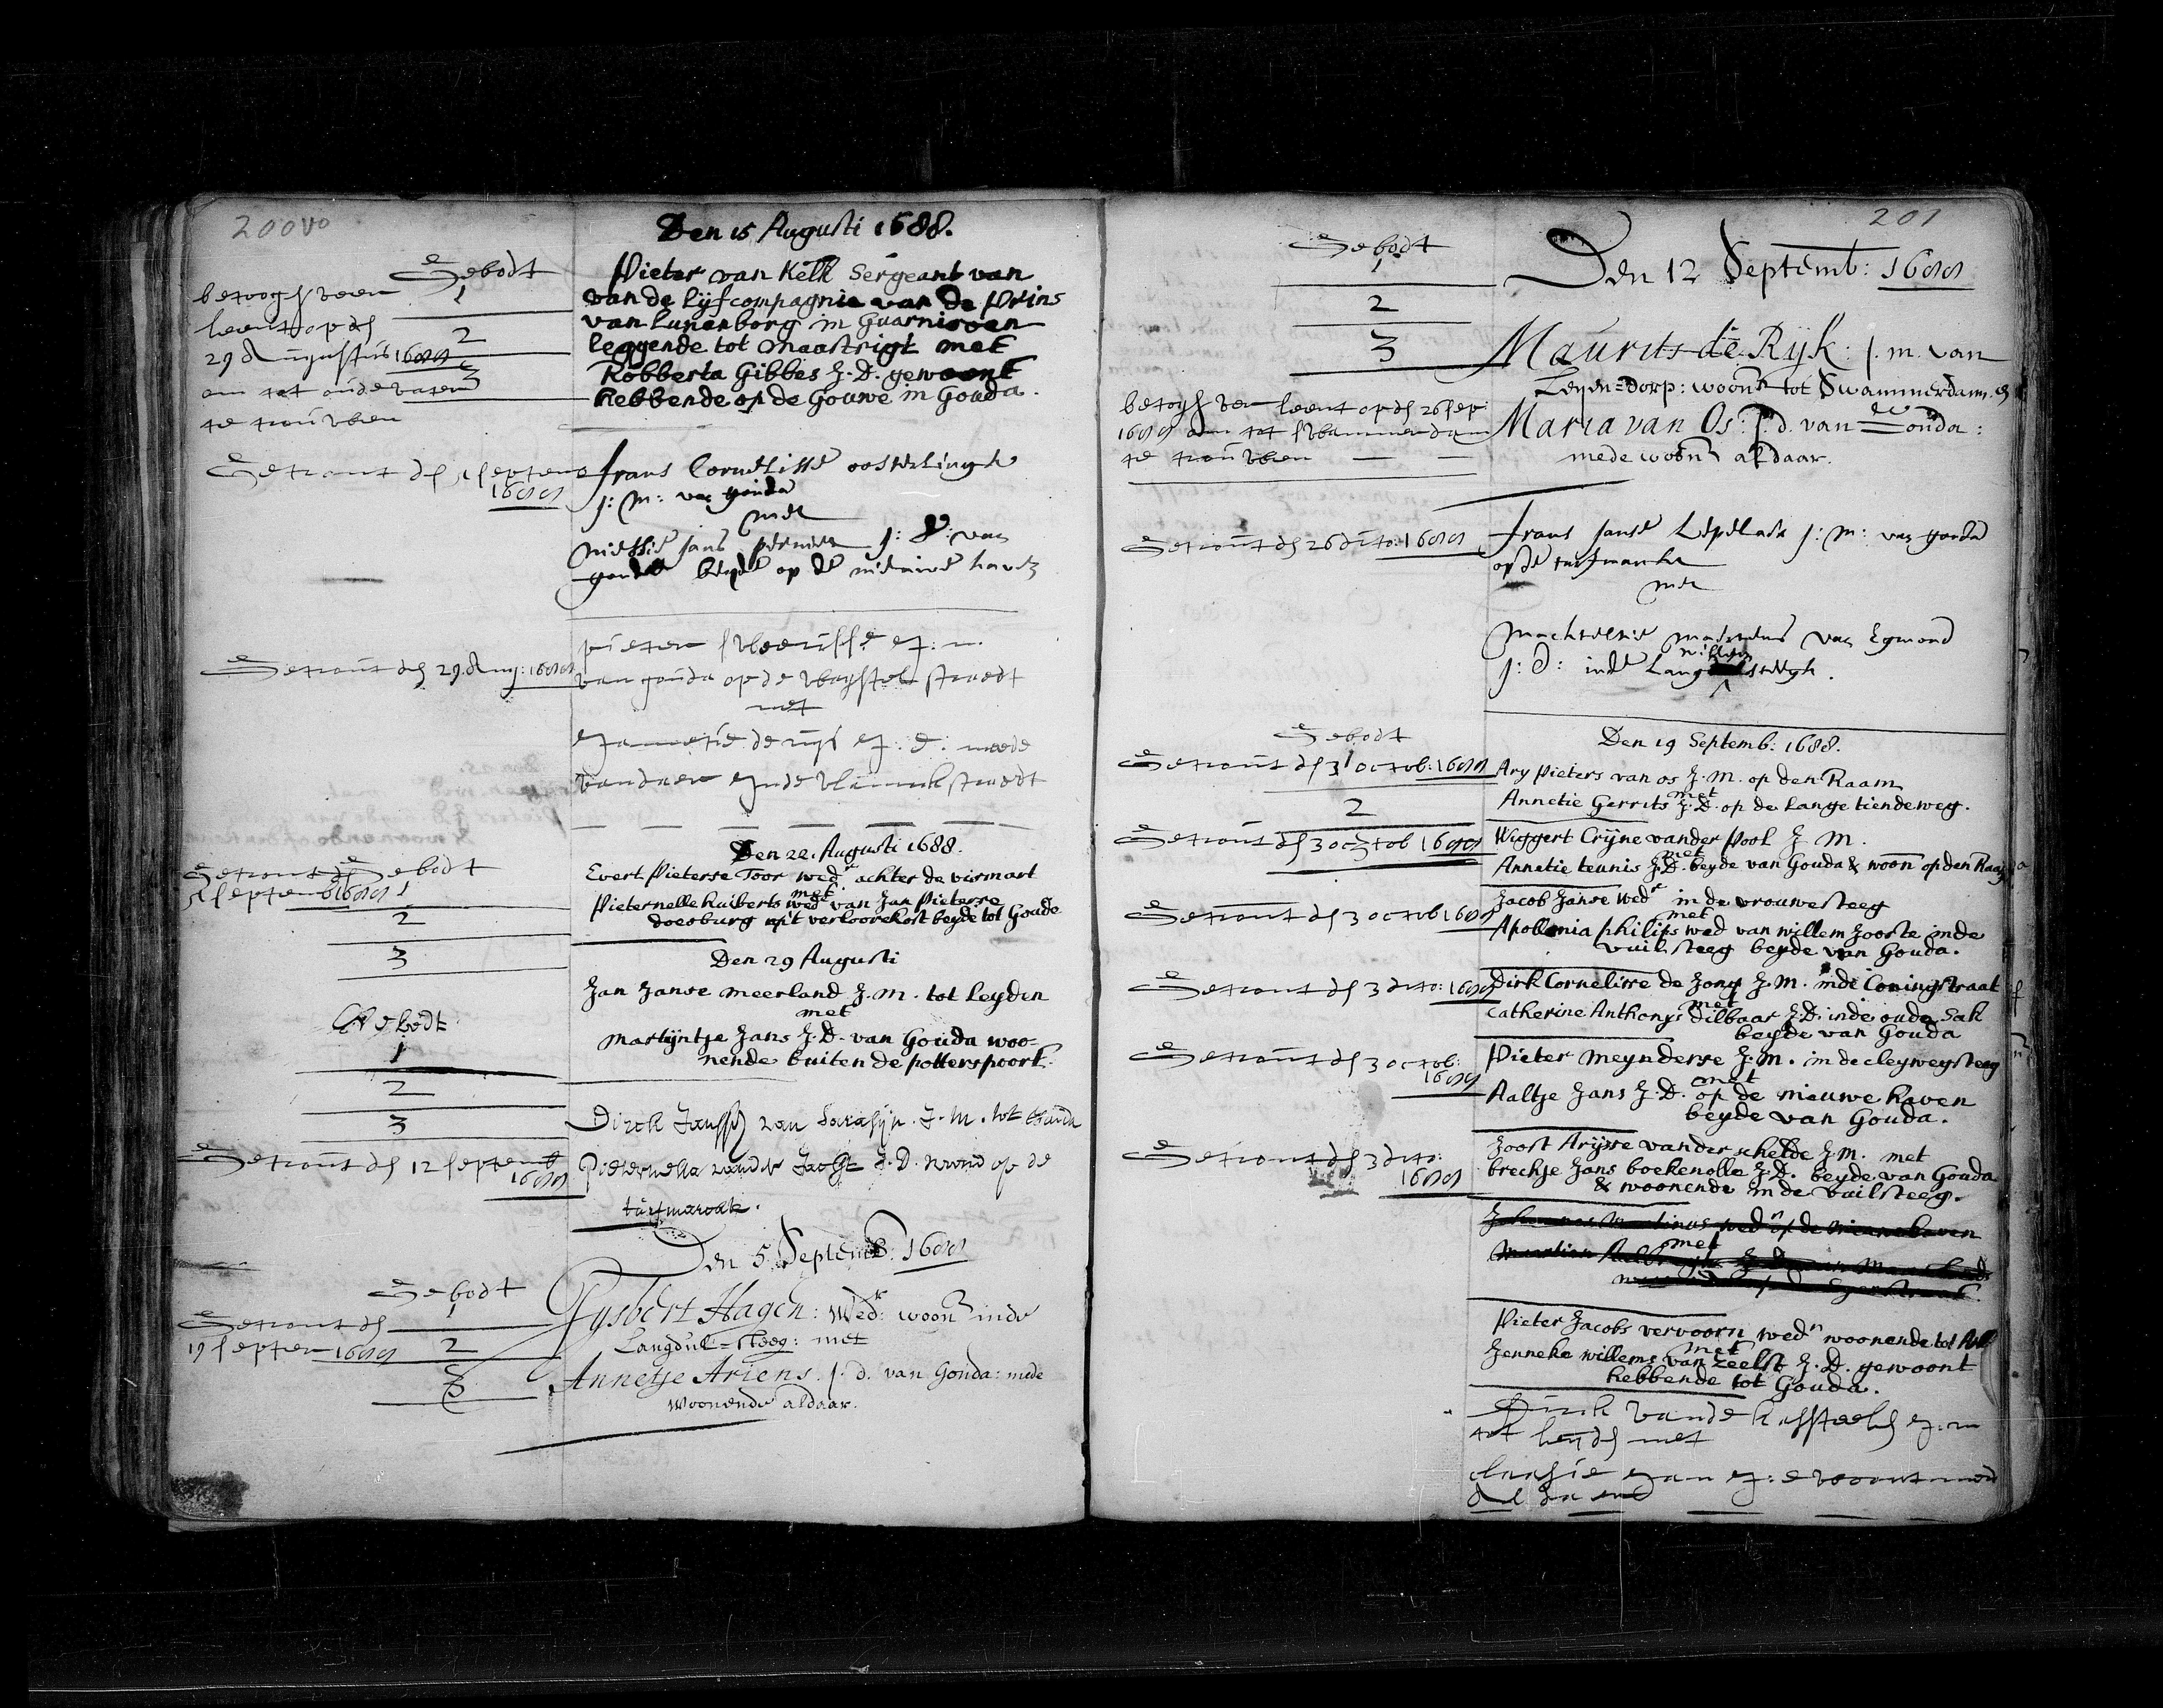 200vo
Den 15 Augusti 1688.
Gebodt
1
2
3
betoogh verleent op den
29 Augustus 1688
om tot oudewater
te trouwen
Pieter van Kelk Sergeant van
van de Lyfcompagnie van de Prins
van Lunenborg in Guarnisoen
leggende tot Maastrigt met
Robberta Gibbes J.D. gewoont
hebbende op de Gouwe in Gouda.
Getrout den 5 septem
1688
frans Cornelisse oosterlingh
j: m: van gouda
met
jans j: d: van
gouda beyde op de nieuwe haven
Getrout den 29 Aug: 1688
pieter j: m.
van gouda op de straedt
met
jannetie de j: d: meede
van daer straedt
Den 22. Augusti 1688.
Getrout den
5 septem 1688
Gebodt
1
2
3
Evert Pieterse Toor wedr achter de vismart
met
Pieternelle huiberts wede van Jan Pieterse
doesburg uyt verloorekost beyde tot Goude
Den 29 Augusti
Gebodt
1
2
3
Jan Janse meerland J.M. tot Leyden
met
Martijntje Jans J.D. van Gouda woo-
nende buiten de potterspoort.
Getrout den 12 septemb
1688
Dirck Jansse van J.M. tot Gouda
Pieternella vander Jacht J.D. op de
turfmarckt.
Den 5 Septemb: 1688
Gebodt
1
2
3
Getrout den
19 septem 1688
Gysbert Hagen: Wedr: woon inde
Langdul=steeg: met
Annetje Ariens. j. d. van Gouda: mede
woonende aldaar.
201
Den 12 Septemb: 1688
Gebodt
1
2
3
betoogh verleent op den 26 sep
1688 om tot Swammerdam
te trouwen
Maurits de Ryk: j. m. van
Leyen=Dorp: woont tot Swammerdam. &
Maria van Os: j. d. van Gouda:
mede woont aldaar.
Getrout den 26 dito: 1688
frans janse Lepelaer j: m: van gouda
op de turfmarckt
met
Machteltie van Egmond
j: d: inde Lang willige steegh.
Den 19 Septemb: 1688.
Gebodt
1
2
3
Getrout den 3 octob: 1688
Ary Pieters van os J.M. op den Raam
met
Annetie Gerrits J.D. op de Lange tiendeweg.
Getrout den 3 octob 1688
Wiggert Crijne vander Pool J M.
met
Annetie teunis J.D. beyde van Gouda & woon op den Raam
Getrout den 3 octob 1688
Jacob Janse Wedr in de vrouwesteeg
met
Apollonia philips wed van willem Jooste inde
vuilsteeg beyde van Gouda.
Getrout den 3 dito: 1688
Dirk Cornelisse de Jong J.M. inde Coningstraat
met
Catherine Anthonys dilbaar J.D. inde oude Sak
beyde van Gouda
Getrout den 3 octob:
1688
Pieter Meynderse J.M. in de cleywegsteeg
met
Aaltje Jans J.D. op de nieuwe haven
beyde van Gouda.
Getrout den 3 dito:
1688
Joost Arijsse vander schelde J.M. met
brechje Jans boekenolle J.D. beyde van Gouda
& woonende in de Vuilsteeg.
Johannes Martinus wedn op de nieuwehaven
met
Pieter Jacobs vervoorn wedn woonende tot
met
Jenneke willems van Zeelst J.D. gewoont
hebbende tot Gouda.
Dirck vande j: m
tot leyden met
j: d woont mede
aldaer